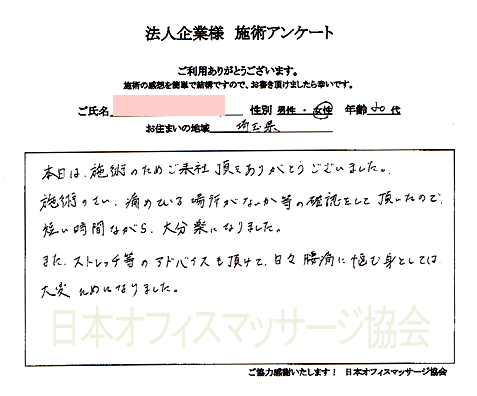 法人企業様 施術アンケート
ご利用ありがとうございます。
施術の感想を簡単で結構ですので、お書き頂けましたら幸いです。
ご氏名 性別 男性・女性 年齢 30代
お住まいの地域 埼玉県
本日は、施術のためご来社頂きありがとうございました。
施術のさい、痛めている場所がないか等の確認をして頂いたので、
短い時間ながら、大分楽になりました。
また、ストレッチ等のアドバイスも頂けて、日々腰痛に悩む身としては、
大変ためになりました。
日本オフィスマッサージ協会
ご協力感謝いたします！ 日本オフィスマッサージ協会